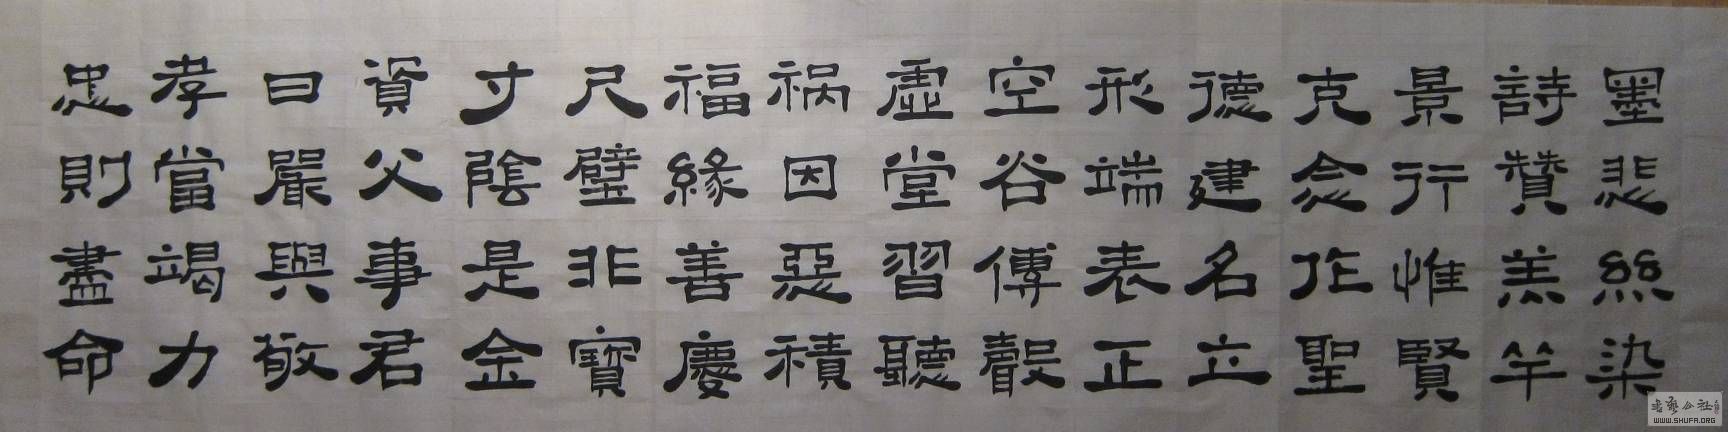 墨悲絲染
詩贊羔羊
景行惟賢
克念作聖
德建名立
形端表正
空谷傳聲
虛堂習聽
祸因惡積
福緣善慶
尺璧非寶
寸陰是金
資父事君
曰嚴與敬
孝當竭力
忠則盡命
书艺公社
WWW.SHUFA.ORG